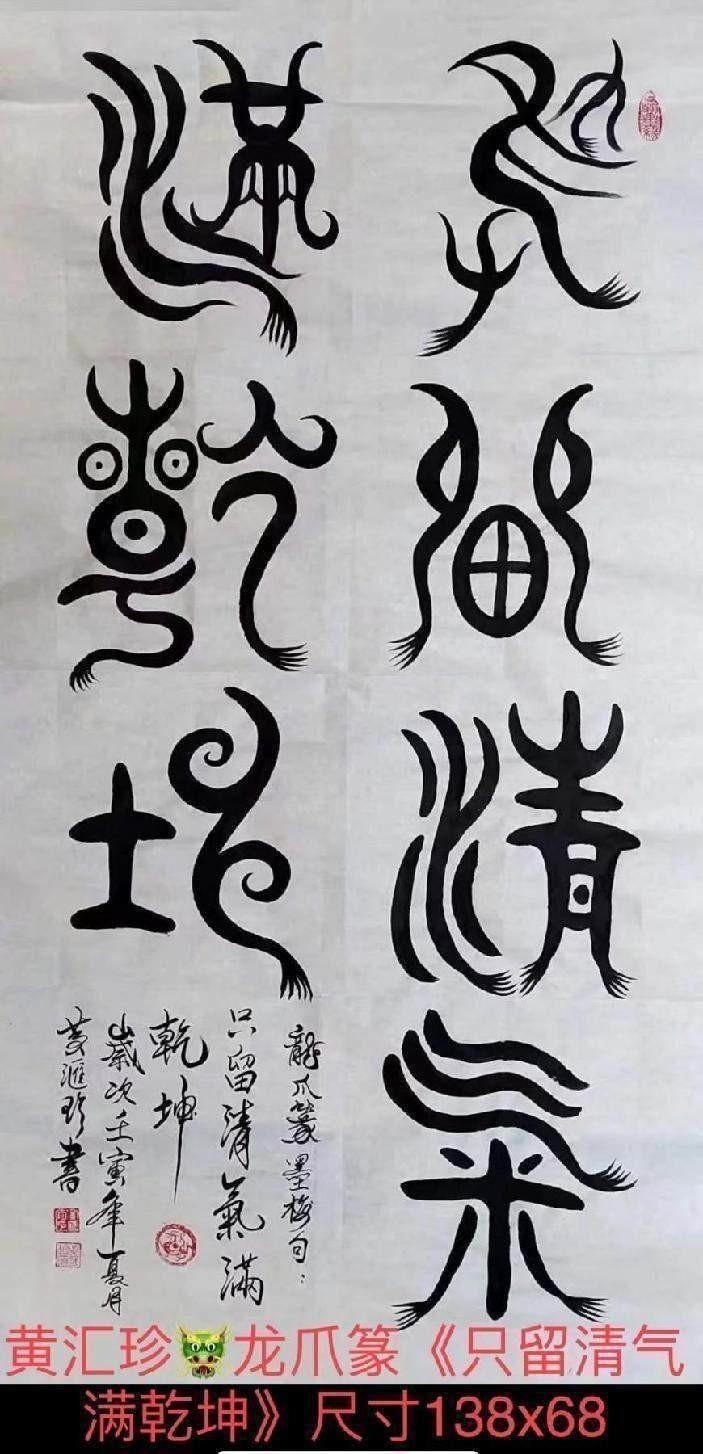 只留清氣
滿乾坤
龍爪篆墨梅句：
只留清氣滿
乾坤
歲次壬寅年夏月
黃滙珍書
黄汇珍🐲龙爪篆《只留清气
满乾坤》尺寸138x68